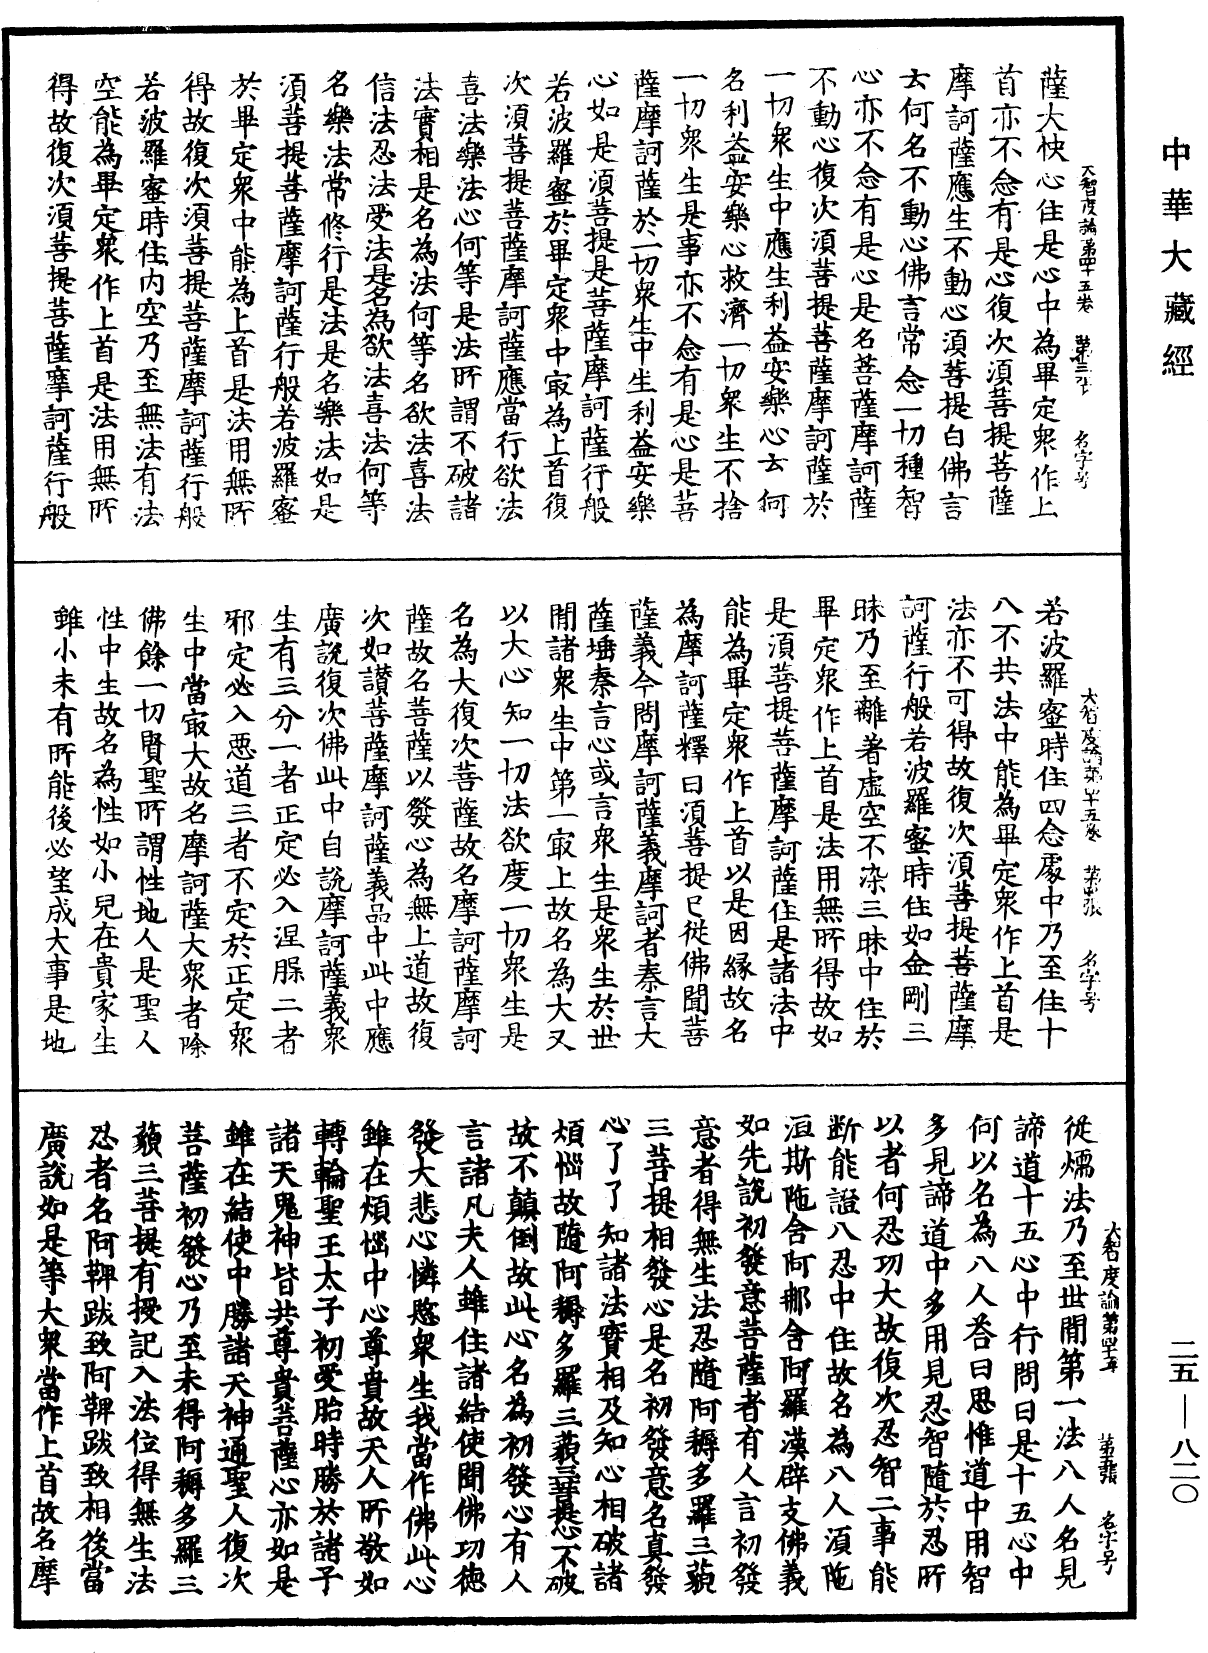 中華大藏經
二五—八二〇
大智度論第四十五卷 第三張 名字号
薩大快心住是心中為畢定衆作上
首亦不念有是心復次須菩提菩薩
摩訶薩應生不動心須菩提白佛言
云何名不動心佛言常念一切種智
心亦不念有是心是名菩薩摩訶薩
不動心復次須菩提菩薩摩訶薩於
一切衆生中應生利益安樂心云何
名利益安樂心救濟一切衆生不捨
一切衆生是事亦不念有是心是菩
薩摩訶薩於一切衆生中生利益安樂
心如是須菩提是菩薩摩訶薩行般
若波羅蜜於畢定衆中㝡為上首復
次須菩提菩薩摩訶薩應當行欲法
喜法樂法心何等是法所謂不破諸
法實相是名為法何等名欲法喜法
信法忍法受法是名為欲法喜法何等
名樂法常修行是法是名樂法如是
須菩提菩薩摩訶薩行般若波羅蜜
於畢定衆中能為上首是法用無所
得故復次須菩提菩薩摩訶薩行般
若波羅蜜時住內空乃至無法有法
空能為畢定衆作上首是法用無所
得故復次須菩提菩薩摩訶薩行般
大智度論第四十五卷 第四張 名字号
若波羅蜜時住四念處中乃至住十
八不共法中能為畢定衆作上首是
法亦不可得故復次須菩提菩薩摩
訶薩行般若波羅蜜時住如金剛三
昧乃至離著虛空不染三昧中住於
畢定衆作上首是法用無所得故如
是須菩提菩薩摩訶薩住是諸法中
能為畢定衆作上首以是因緣故名
為摩訶薩釋曰須菩提已從佛聞菩
薩義今問摩訶薩義摩訶者秦言大
薩埵秦言心或言衆生是衆生於世
間諸衆生中第一㝡上故名為大又
以大心知一切法欲度一切衆生是
名為大復次菩薩故名摩訶薩摩訶
薩故名菩薩以發心為無上道故復
次如讃菩薩摩訶薩義品中此中應
廣說復次佛此中自說摩訶薩義衆
生有三分一者正定必入涅槃二者
邪定必入惡道三者不定於正定衆
生中當㝡大故名摩訶薩大衆者除
佛餘一切賢聖所謂性地人是聖人
性中生故名為性如小兒在貴家生
雖小未有所能後必望成大事是地
大智度論第四十五卷 第五張 名字号
從煗法乃至世間第一法八人名見
諦道十五心中行問曰是十五心中
何以名為八人荅曰思惟道中用智
多見諦道中多用見忍智隨於忍所
以者何忍功大故復次忍智二事能
斷能證八忍中住故名為八人須陁
洹斯陁含阿那含阿羅漢辟支佛義
如先說初發意菩薩者有人言初發
意者得無生法忍隨阿耨多羅三藐
三菩提相發心是名初發意名真發
心了了知諸法實相及知心相破諸
煩惱故隨阿耨多羅三藐三菩提心不破
故不顛倒故此心名為初發心有人
言諸凡夫人雖住諸結使聞佛功德
發大悲心憐愍衆生我當作佛此心
雖在煩惱中心尊貴故天人所敬如
轉輪聖王太子初受胎時勝於諸子
諸天鬼神皆共尊貴菩薩心亦如是
雖在結使中勝諸天神通聖人復次
菩薩初發心乃至未得阿耨多羅三
藐三菩提有授記入法位得無生法
忍者名阿鞞跋致阿鞞跋致相後當
廣說如是等大衆當作上首故名摩